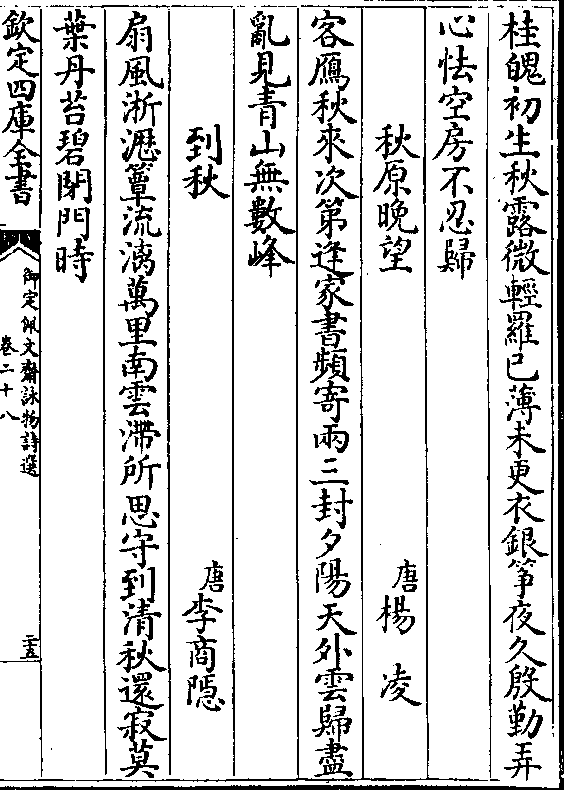 桂魄初生秋露微輕羅已薄未更衣銀箏夜久殷勤弄
心怯空房不忍歸
秋原晚望
唐楊凌
客鴈秋來次第逢家書頻寄兩三封夕陽天外雲歸盡
亂見青山無數峰
到秋
唐李商隱
扇風淅瀝簟流漓萬里南雲滯所思守到清秋還寂莫
葉丹苔碧閉門時
欽定四庫全書
御定佩文齋詠物詩選
卷二十八
二五